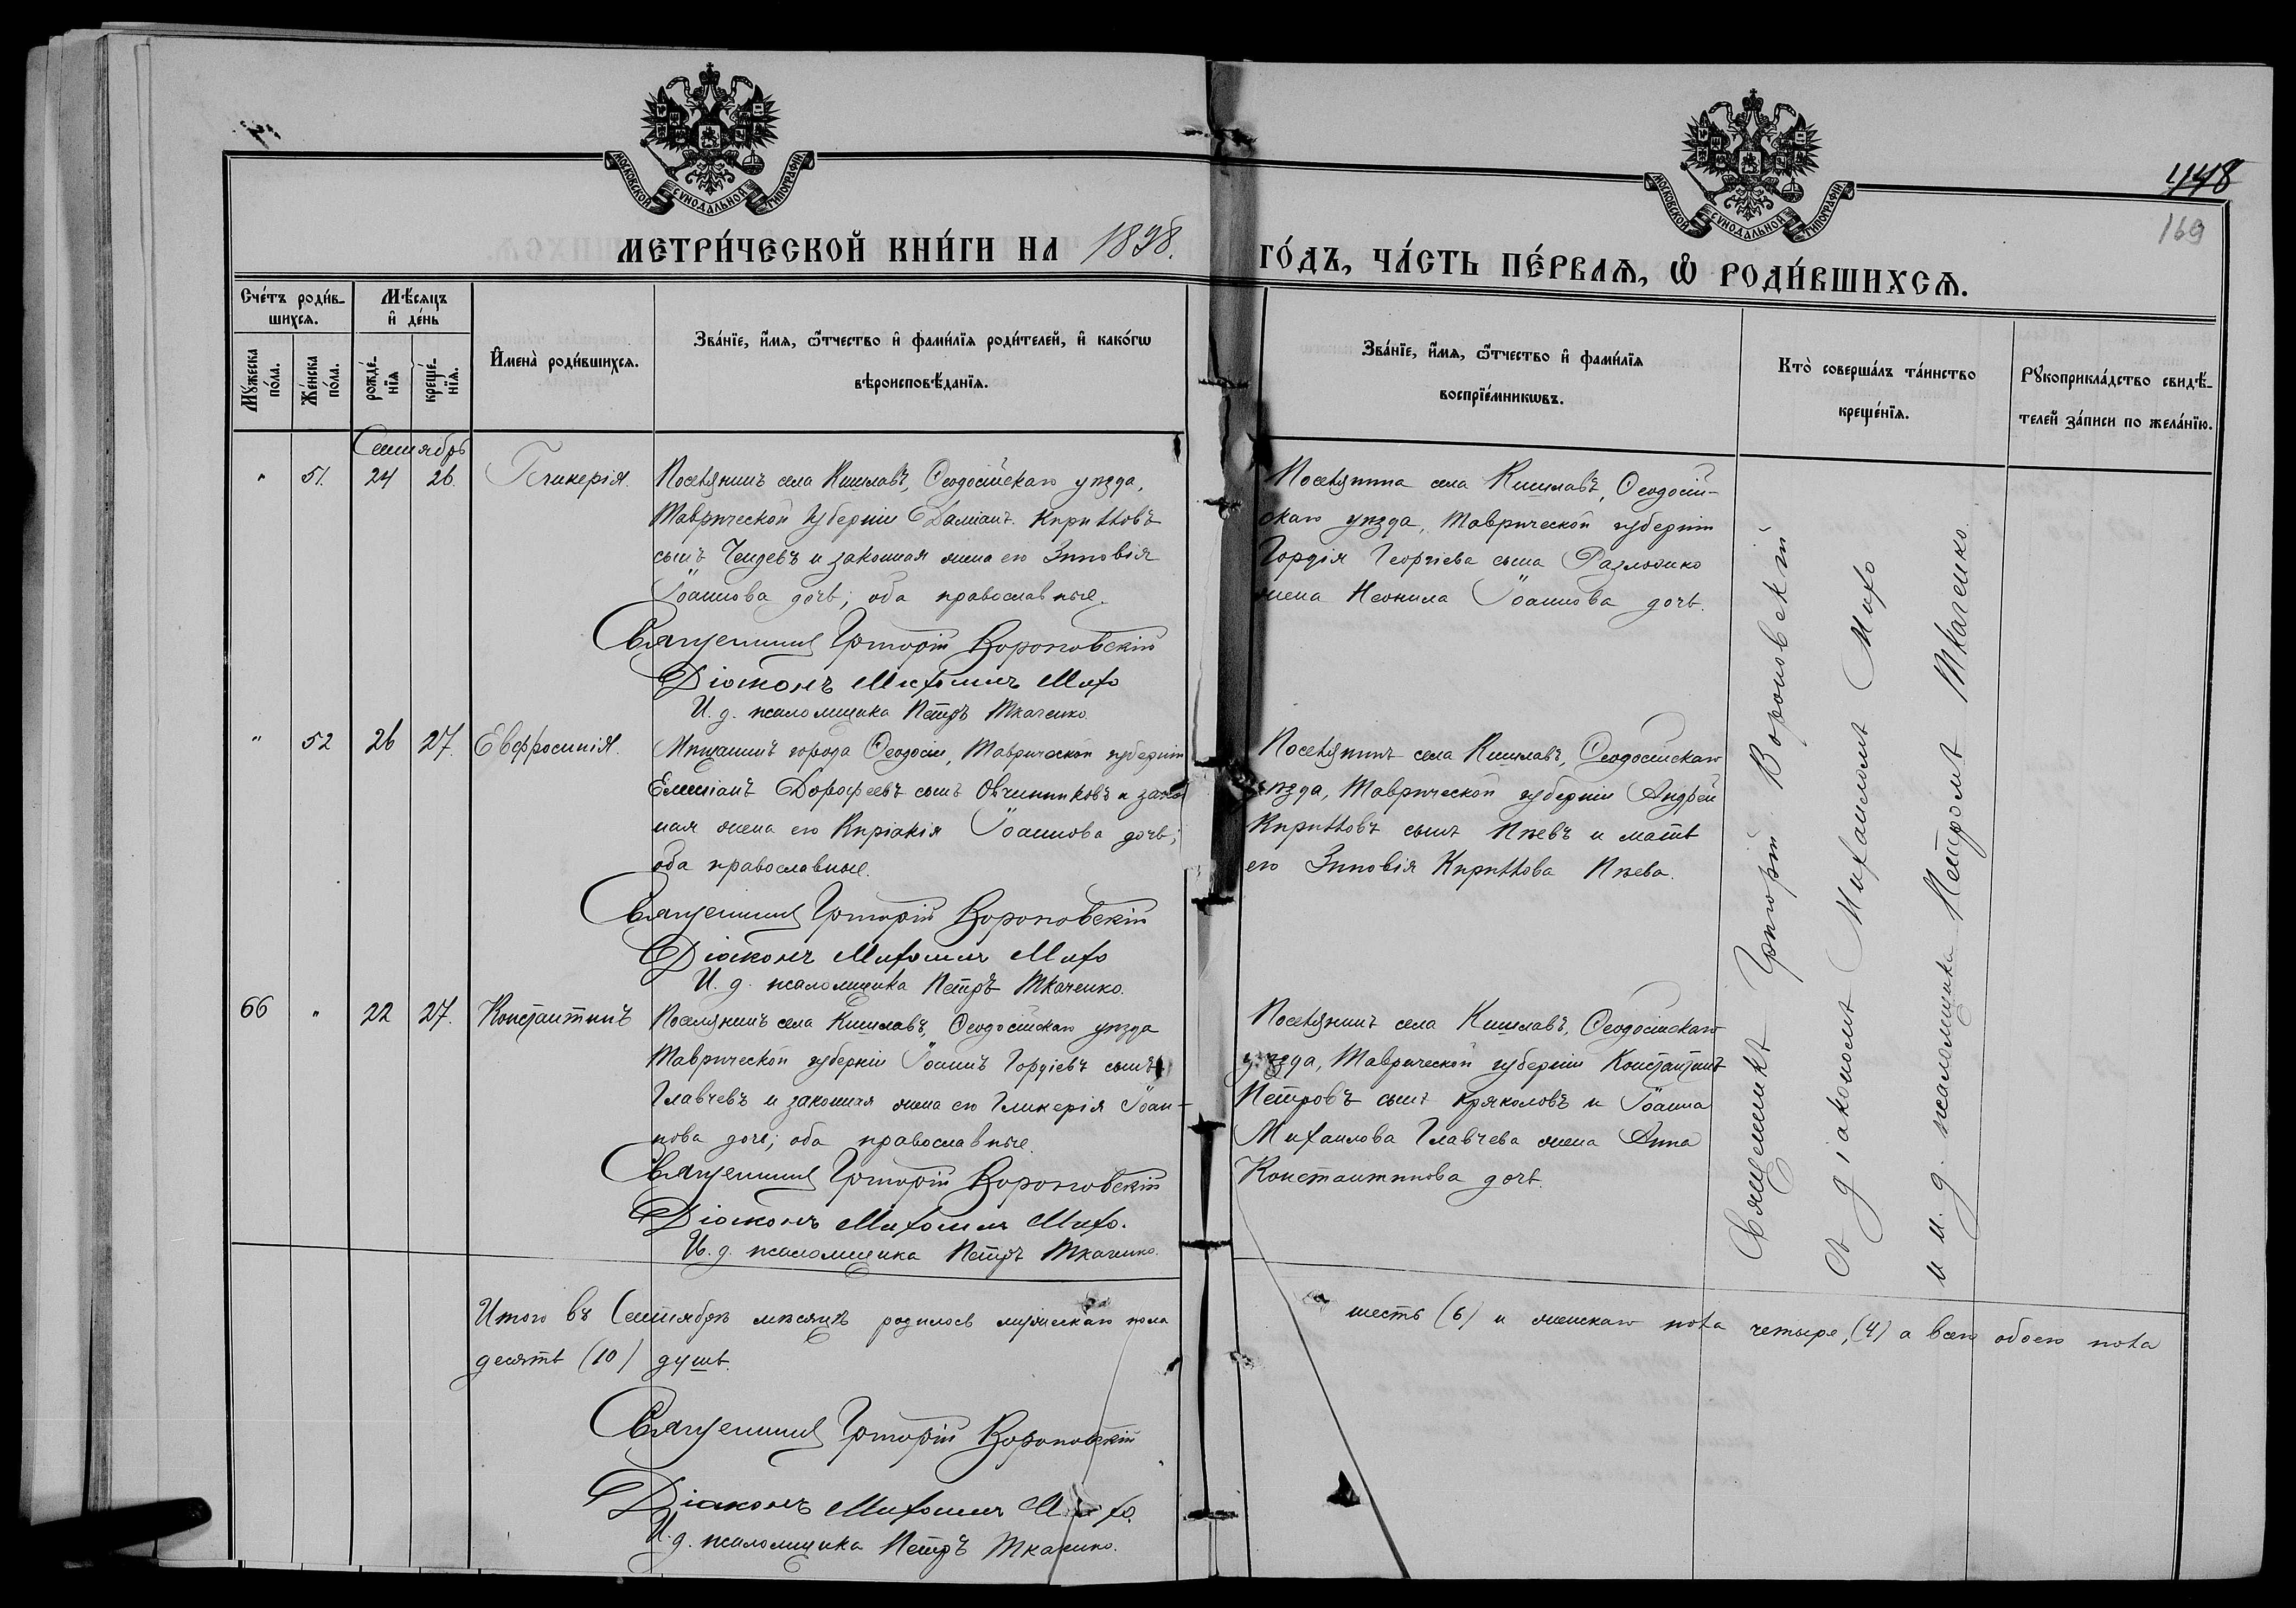 МОСКОВСКОЙ СѴНОДАЛЬНОЙ ТИПОГРАФІИ
МОСКОВСКОЙ СѴНОДАЛЬНОЙ ТИПОГРАФІИ
448
169
МЕТРИ́ЧЕСКОЙ КНИ́ГИ НА 1898.
ГО́ДЪ, ЧА́СТЬ ПЕ́РВАѦ, Ѡ҆ РОДИ́ВШИХСѦ.
Сче́тъ роди́в-
шихсѧ.
Мꙋ́жеска по́ла.
Же́нска по́ла.
Мѣ́сѧцъ
и҆ де́нь
рожде́-
нїѧ
креще́-
нїѧ.
И҆мена̀ роди́вшихсѧ.
Зва́нїе, и҆́мѧ, ѻ҆́тчество и҆ фами́лїѧ роди́телей, и҆ како́гѡ
вѣроисповѣ́данїѧ.
Зва́нїе, и҆́мѧ, ѻ҆́тчество и҆ фами́лїѧ
воспрїе́мникѡвъ.
Кто̀ соверша́лъ та́инство
креще́нїѧ.
Рꙋкоприкла́дство свидѣ́-
телей за́писи по жела́нїю.
Сентябрь
" 51. 24 26. Гликерія.
Поселянинъ села Кишлавъ, Ѳеодосійскаго уѣзда,
Таврической губерніи Даміанъ Кирилловъ
сынъ Чендевъ и законная жена его Зиновія
Іоаннова дочь; оба православные.
Священникъ Григорій Вороновскій
Діаконъ Михаилъ Михо
И. д. псаломщика Петръ Ткаченко.
Поселянина села Кишлавъ, Ѳеодосій-
скаго уѣзда, Таврической губерніи
Гордія Георгіева сына
жена Неонила Іоаннова дочь.
" 52 26 27. Евфросинія.
Мѣщанинъ города Ѳеодосіи, Таврической губерніи
Емиліанъ Дорофеевъ сынъ Овчинниковъ и закон
ная жена его Киріакія Іоаннова дочь;
оба православные.
Священникъ Григорій Вороновскій
Діаконъ Михаилъ Михо
И. д. псаломщика Петръ Ткаченко.
Поселянинъ села Кишлавъ, Ѳеодосійскаго
уѣзда, Таврической губерніи Андрей
Кирилловъ сынъ и мать
его Зиновія Кириллова
66 " 22 27. Константинъ
Поселянинъ села Кишлавъ, Ѳеодосійскаго уѣзда
Таврической губерніи Іоаннъ Гордіевъ сынъ
Главчевъ и законная жена его Гликерія Іоан-
нова дочь; оба православные.
Священникъ Григорій Вороновскій
Діаконъ Михаилъ Михо.
И. д. псаломщика Петръ Ткаченко.
Поселянинъ села Кишлавъ, Ѳеодосійскаго
уѣзда, Таврической губерніи Константинъ
Петровъ сынъ Кряколовъ и Іоанна
Михаилова Главчева жена Анна
Константинова дочь.
Священникъ Григорій Вороновскій
съ діакономъ Михаиломъ Михо
и и. д. псаломщика Петромъ Ткаченко.
Итого въ Сентябрѣ мѣсяцѣ родилось мужескаго пола шесть (6) и женскаго пола четыре, (4) а всего обоего пола
десять (10) душъ.
Священникъ Григорій Вороновскій
Діаконъ Михаилъ Михо.
И. д. псаломщика Петръ Ткаченко.